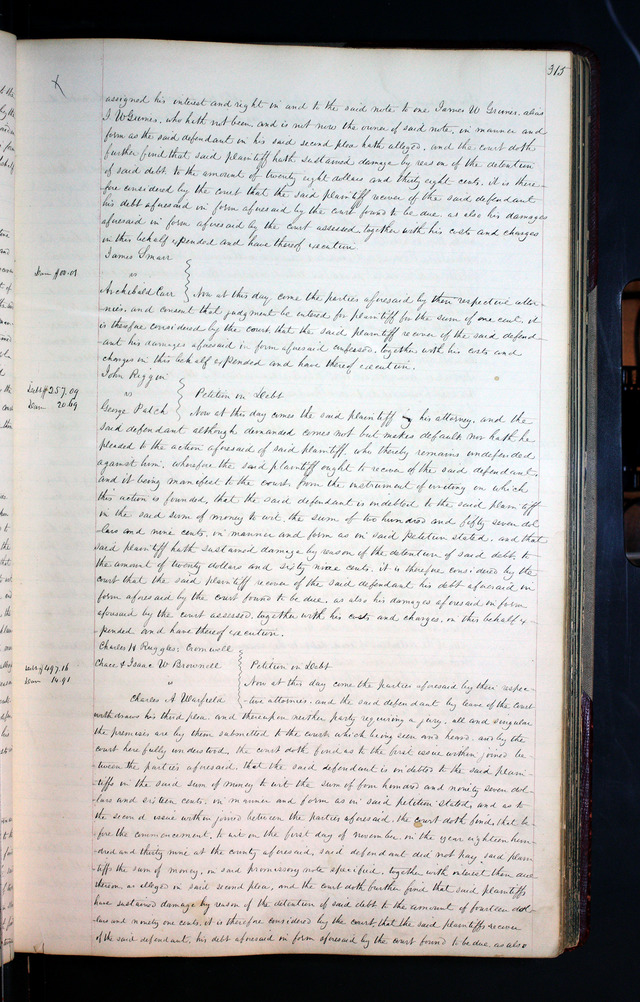 315
assigned his interest and right in and to the said note to one James W Grimes, alias
J W Grimes, who hath not been and is not now the owner of said note, in manner and
form as the said defendant in his said second plea hath alleged, and the court doth
further find that said plaintiff hath sustained damage by reason of the detention
of said debt to the amount of twenty eight dollars and thirty eight cents. it is there
fore considered by the court that the said plaintiff recover of the said defendant
his debt aforesaid in form aforesaid by the court found to be due, as also his damages
aforesaid in form aforesaid by the court assessed, together with his costs and charges
in this behalf expended and have thereof execution
James
Dam $00.01
vs
Archibald Carr Now at this day come the parties aforesaid by their respective attor-
-nies, and consent that judgment be entered for plaintiff for the sum of one cent, it
is therefore considered by the court that the said plaintiff recover of the said defend-
-ant his damages aforesaid in form aforesaid confessed, together with his costs and
charges in this behalf expended and have thereof execution.
John Riggin
Debt $257.09
vs Petition on Debt
Dam 20.69
George Patch Now at this day comes the said plaintiff by his attorney, and the
said defendant although demanded comes not but makes default, nor hath he
pleaded to the action aforesaid of said plaintiff, who thereby remains undefended
against him, wherefore the said plaintiff ought to recover of the said defendant,
and it being manifest to the court, from the instrument of writing on which
this action is founded, that the said defendant is indebted to the said plaintiff
in the said sum of money to wit, the sum of two hundred and fifty seven dol-
-lars and nine cents, in manner and form as in said petition stated, and that
said plaintiff hath sustained damage by reason of the detention of said debt, to
the amount of twenty dollars and sixty nine cents. it is therefore considered by the
court that the said plaintiff recover of the said defendant his debt aforesaid in
form aforesaid by the court found to be due, as also his damages aforesaid in form
aforesaid by the court assessed, together with his costs and charges, in this behalf ex-
-pended and have thereof execution.
Charles H Ruggles, Cromwell
Debt $497.16
Chace & Isaac W Brownell Petition on Debt
Dam 14.91
vs Now at this day come the parties aforesaid by their respec-
Charles A Warfield -tive attornies, and the said defendant by leave of the court
withdraws his third plea and thereupon neither party requiring a jury, all and singular
the premises are by them submitted to the court, which being seen and heard, and by the
court here fully understood, the court doth find as to the first issue within joined be
tween the parties aforesaid, that the said defendant is indebted to the said plain-
-tiffs in the said sum of money to wit the sum of four hundred and ninety seven dol-
lars and sixteen cents, in manner and form as in said petition stated, and as to
the second issue within joined between the parties aforesaid, the court doth find, that be
fore the commencement, to wit on the first day of November, in the year eighteen hun-
-dred and thirty nine at the county aforesaid, said defendant did not pay said plain
-tiffs the sum of money, in said promissory note specified, together with interest then due
thereon, as alleged in said second plea, and the court doth further find that said plaintiffs
have sustained damage by reason of the detention of said debt to the amount of fourteen dol-
-lars and ninety one cents. it is therefore considered by the court, that the said plaintiffs recover
of the said defendant, his debt aforesaid in form aforesaid by the court found to be due, as also